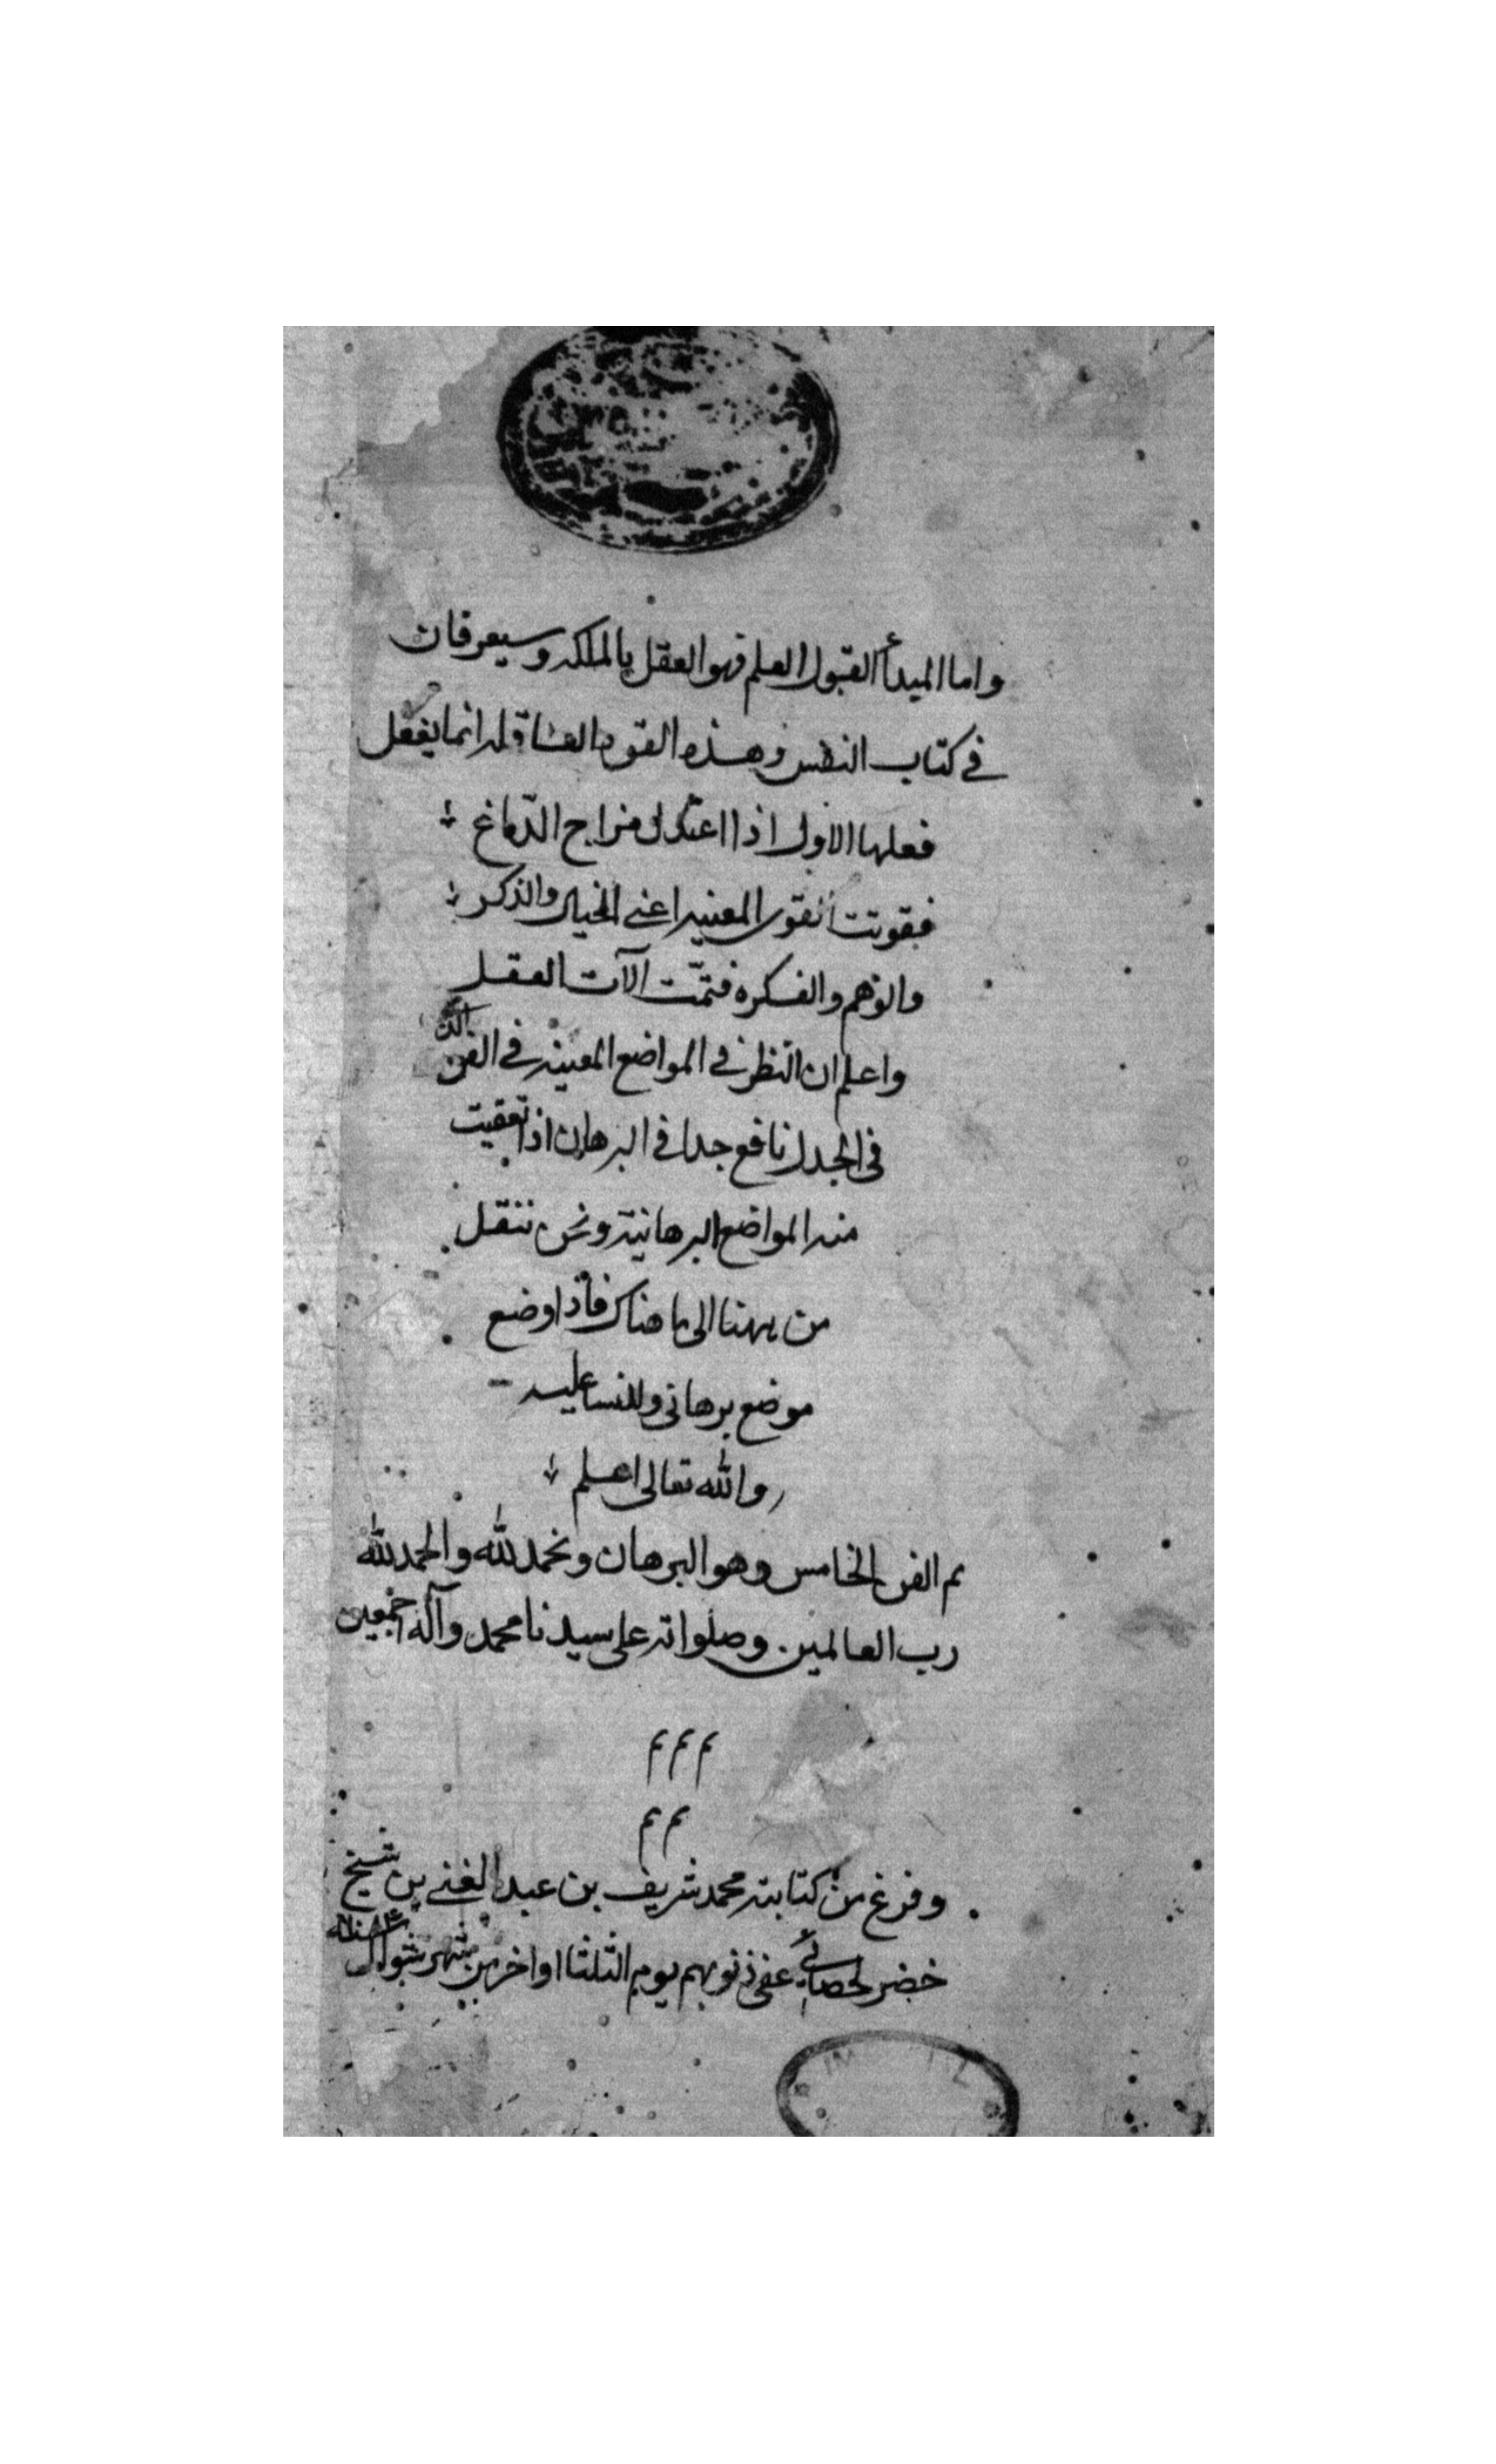 واما المبدأ القبول العلم فهو العقل بالملكه وسيعرفان
في كتاب النفس وهذه القوه انما يفعل
فعلها الاول اذا اعتدل مزاج الدّماغ
فقويت القوى المعنيه اعني الخيال والذكر
والوهم والفكره فتمّت آلات العقل
واعلم ان النظر في المواضع المعينه في الفن الذى
في الجدل نافع جدا في البرهان اذا تعقبت
منه المواضع البرهانية ونحن ننقل
من ههنا الى ما هناك فاذا وضع
موضع برهاني عليه
والله تعالى اعلم
تم الفن الخامس وهو البرهان ونحمد لله والحمد لله
رب العالمين وصلواته على سيدنا محمد وآله اجمعين
م م م
م م
وفرغ من كتابته محمد شريف بن عبد الغني بن شيخ
خضر عفى ذنوبهم يوم الثلثا اواخر من شهر شوال